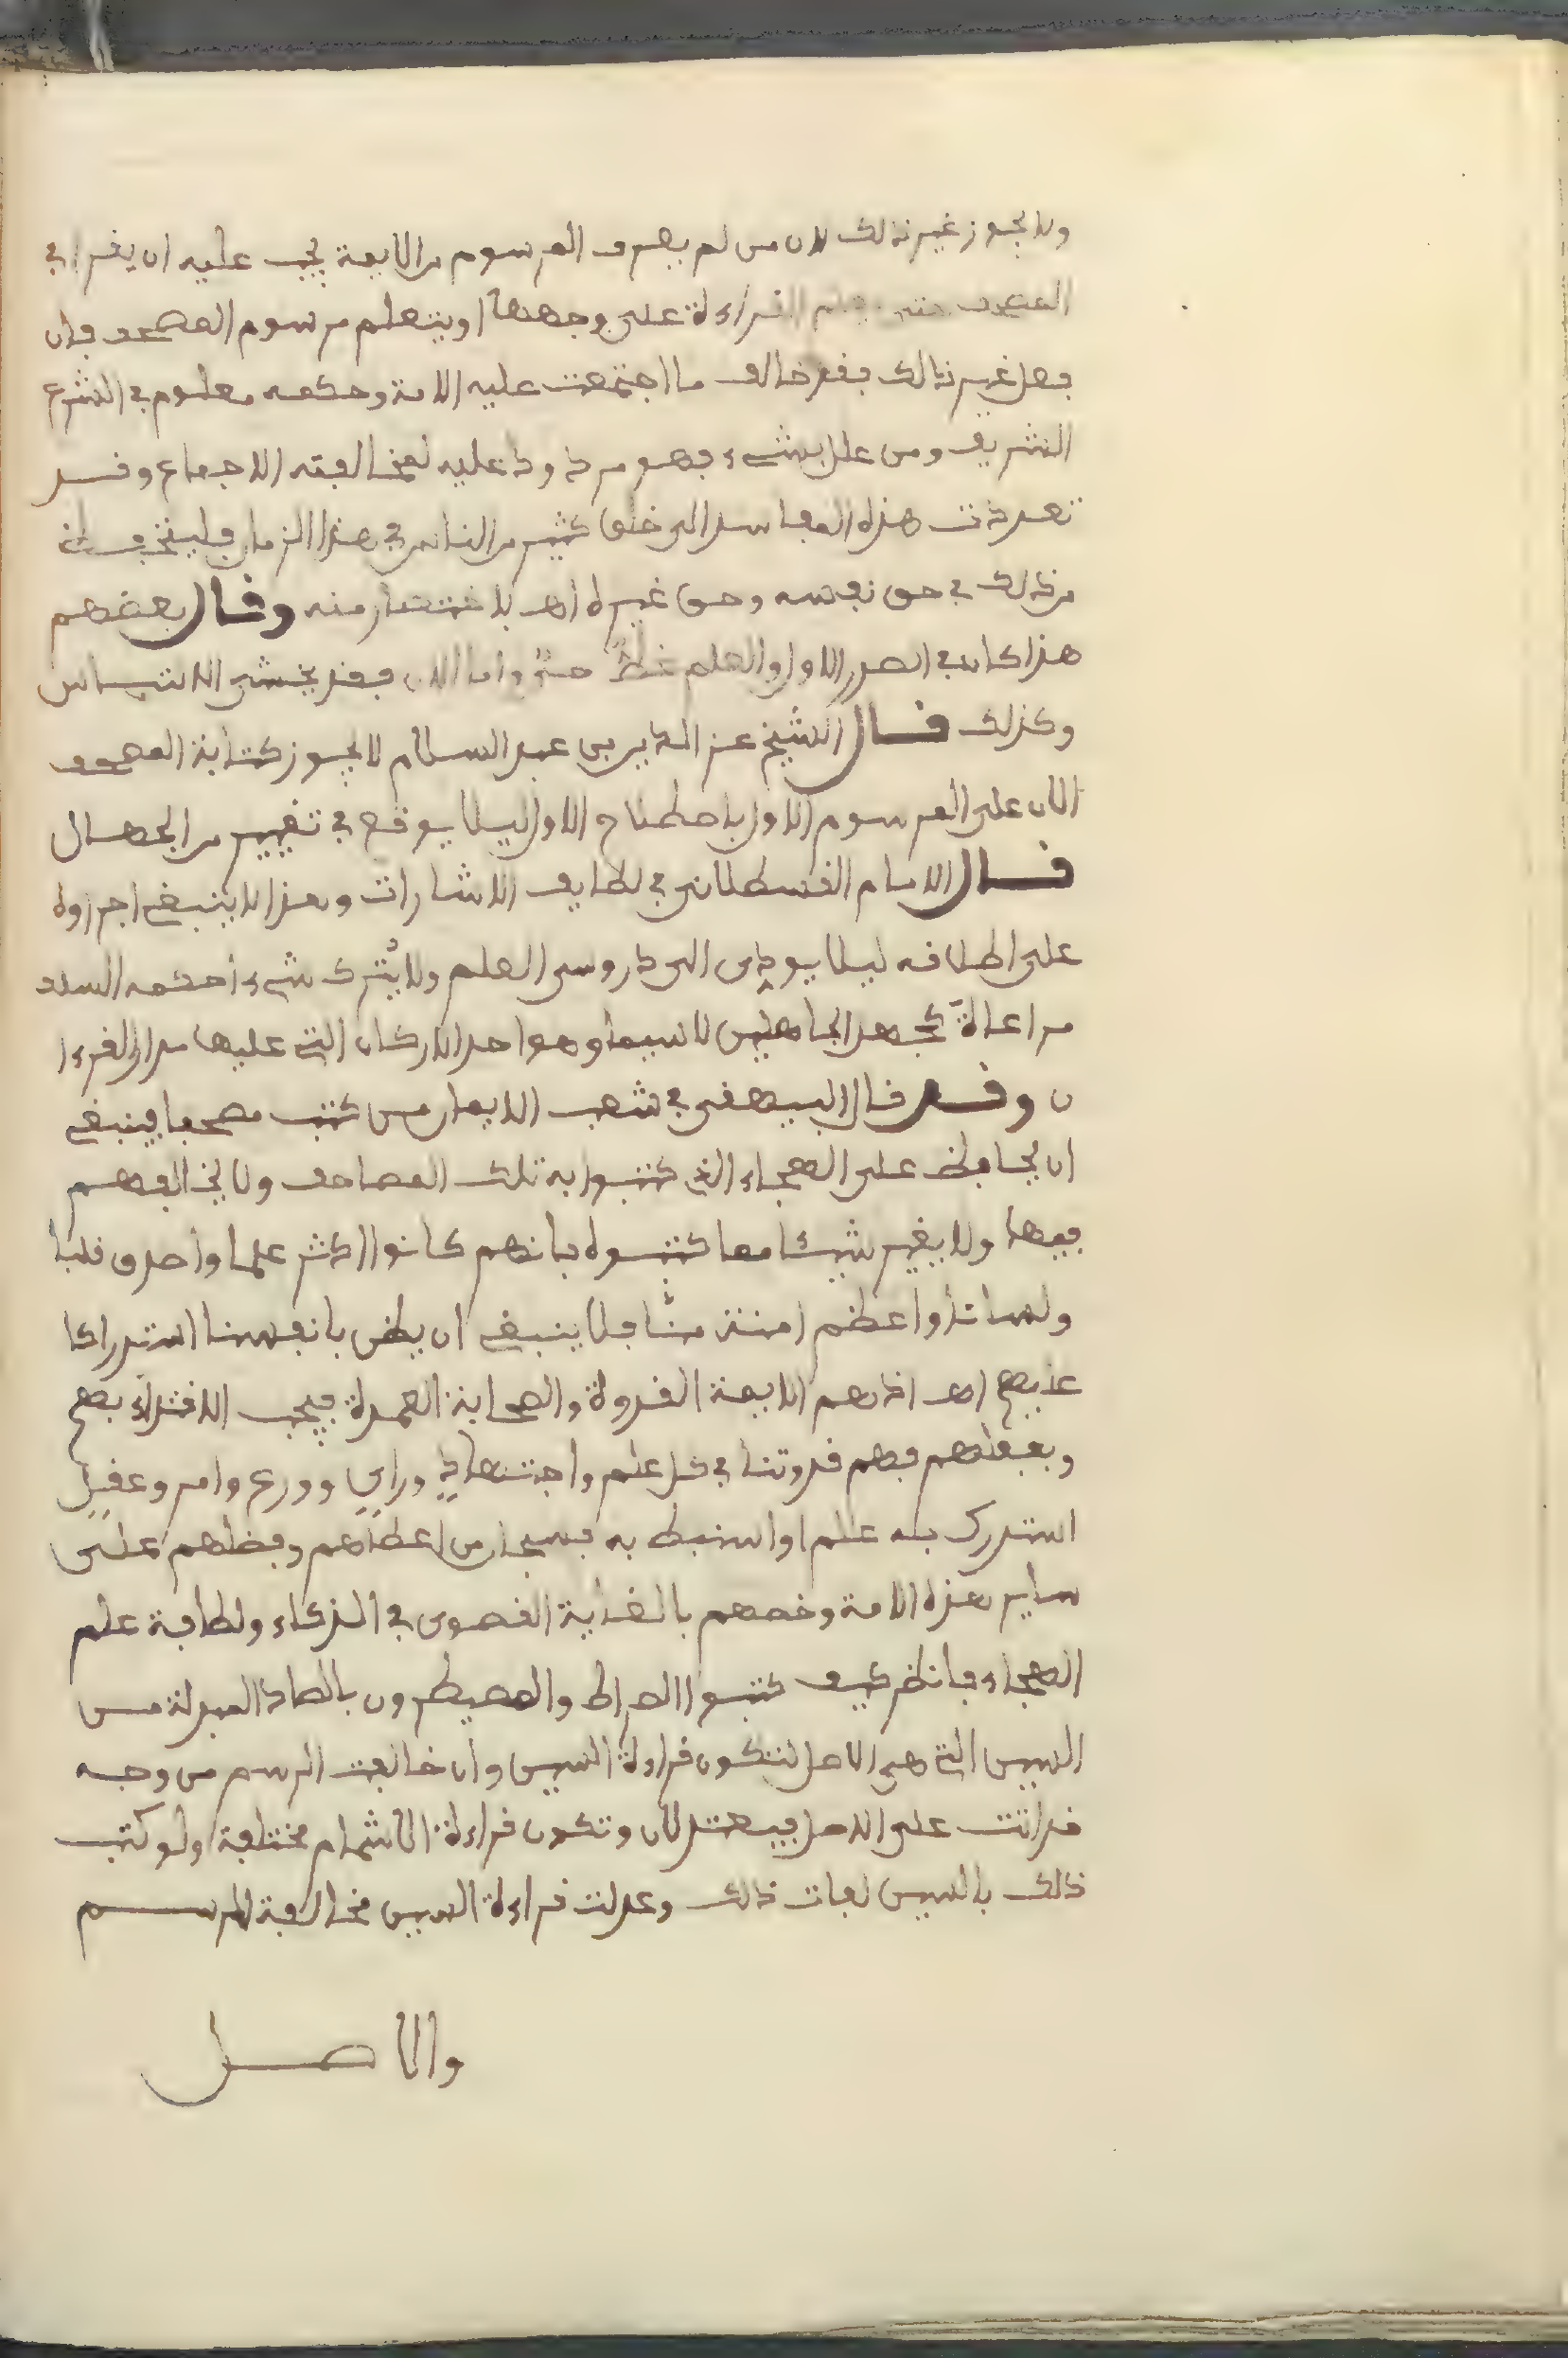 ولا يجوز غير ذلك لان من لم يعرف المرسوم من الايمة يجب عليه ان يقرا في
المصحف حتى يتعلم القراءة على وجهها او يتعلم مرسوم المصحف فان
فعل غير ذلك فقد خالف ما اجتمعت عليه الامة وحكمه معلوم في الشرع
الشريف ومن علل بشيء فهو مردود عليه لمخالفته الاجماع وقد
تعدت هذه المفاسد الى خلق كثير من الناس في هذا الزمان فليتحفظ
من ذلك في حق نفسه وحق غيره اهـ باختصار منه وقال بعضهم
هذا كان في الصدر الاول والعلم غض حي واما الان فقد يخشى الالتباس
وكذلك قال الشيخ عز الدين بن عبد السلام لا يجوز كتابة المصحف
الان على المرسوم الاول باصطلاح الاول ليلا يوقع في تغيير من الجهال
قال الامام القسطلاني في لطايف الاشارات وهذا لا ينبغي اجراوه
على اطلاقه ليلا يودى الى دروس العلم ولا يُترك شيء أحكمه السلف
مراعاةً لجهل الجاهلين لا سيما وهو احد الاركان التي عليها مدار القرءا
ن وقد قال البيهقي في شعب الايمان من كتب مصحفا فينبغي
ان يحافظ على الهجاء الذي كتبوا به تلك المصاحف ولا يخالفهم
فيها ولا يغير شيئا مما كتبوه فانهم كانوا اكثر علما واصدق قلبا
ولسانا واعظم امنة منّا فلا ينبغي ان يظن بانفسنا استدراكا
عليهم اهـ اذ هم الايمة القدوة والصحابة العمدة فيجب الاقتداء بهم
وبفعلهم فهم قدوتنا في كل علم واجتهادٍ ورايٍ وورع وامر وعقلٍ
استدرك به علم او استنبط به فسبحان من اعطاهم وفضلهم على
ساير هذه الامة وخصهم بالغاية القصوى في الذكاء ولطافة علم
الهجاء فانظر كيف كتبوا الصراط والمصيطرون بالصاد المبدلة من
السين التي هي الاصل لتكون قراءة السين وان خالفت الرسم من وجه
قد اتت على الاصل فيعتدلان وتكون قراءة الاشمام مختلفة ولو كتب
ذلك بالسين لفات ذلك وعدلت قراءة السين مخالفة للرسم
والاصل